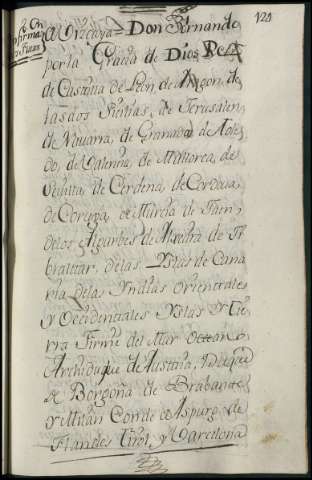 120
Con
firma
n Fueros
a Vizcaya = Don Fernando
por la Gracia de Dios Rey
de Castilla de Leon, de Aragón, de
las dos Sicilias, de Jerusalen
de Navarra, de Granada de Tole
do, de Valencia, de Mallorca, de
Sevilla de Cerdena, de Cordova,
de Corcega, de Murcia de Jaen,
delos Algarbes de Algecira de Gi
braltar, delas Yslas de Cana
ria dela Yndias orientales
y Occidentales Yslas y Tie
rra Firme del Mar Occeano
Archiduque de Austria, Duque
de Borgoña de Brabante
y Milan Conde de Aspurg, de
Flandes Tirol, y Barcelona